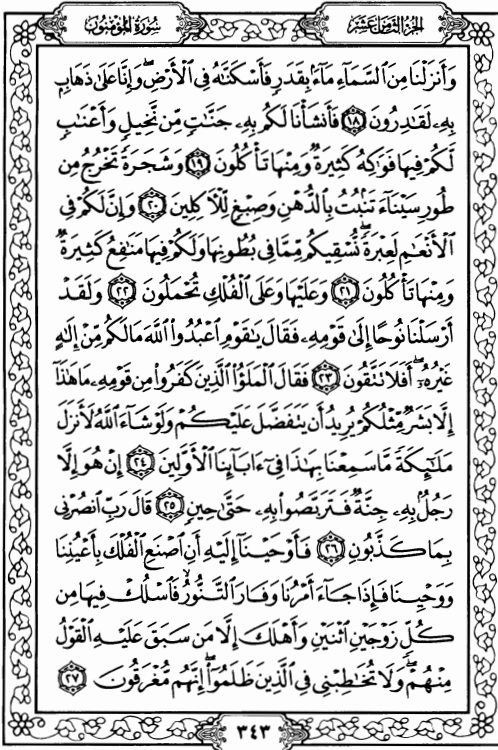 الجزء الثامن عشر سورة المؤمنون
وَأَنزَلْنَا مِنَ ٱلسَّمَآءِ مَآءًۢ بِقَدَرٍ فَأَسْكَنَّٰهُ فِى ٱلْأَرْضِ ۖ وَإِنَّا عَلَىٰ ذَهَابٍۭ
بِهِۦ لَقَٰدِرُونَ ١٨ فَأَنشَأْنَا لَكُم بِهِۦ جَنَّٰتٍ مِّن نَّخِيلٍ وَأَعْنَٰبٍ
لَّكُمْ فِيهَا فَوَٰكِهُ كَثِيرَةٌ وَمِنْهَا تَأْكُلُونَ ١٩ وَشَجَرَةً تَخْرُجُ مِن
طُورِ سَيْنَآءَ تَنۢبُتُ بِٱلدُّهْنِ وَصِبْغٍ لِّلْءَاكِلِينَ ٢٠ وَإِنَّ لَكُمْ فِى
ٱلْأَنْعَٰمِ لَعِبْرَةً ۖ نُّسْقِيكُم مِّمَّا فِى بُطُونِهَا وَلَكُمْ فِيهَا مَنَٰفِعُ كَثِيرَةٌ
وَمِنْهَا تَأْكُلُونَ ٢١ وَعَلَيْهَا وَعَلَى ٱلْفُلْكِ تُحْمَلُونَ ٢٢ وَلَقَدْ
أَرْسَلْنَا نُوحًا إِلَىٰ قَوْمِهِۦ فَقَالَ يَٰقَوْمِ ٱعْبُدُوا۟ ٱللَّهَ مَا لَكُم مِّنْ إِلَٰهٍ
غَيْرُهُۥٓ ۖ أَفَلَا تَتَّقُونَ ٢٣ فَقَالَ ٱلْمَلَؤُا۟ ٱلَّذِينَ كَفَرُوا۟ مِن قَوْمِهِۦ مَا هَٰذَآ
إِلَّا بَشَرٌ مِّثْلُكُمْ يُرِيدُ أَن يَتَفَضَّلَ عَلَيْكُمْ وَلَوْ شَآءَ ٱللَّهُ لَأَنزَلَ
مَلَٰٓئِكَةً مَّا سَمِعْنَا بِهَٰذَا فِىٓ ءَابَآئِنَا ٱلْأَوَّلِينَ ٢٤ إِنْ هُوَ إِلَّا
رَجُلٌۢ بِهِۦ جِنَّةٌ فَتَرَبَّصُوا۟ بِهِۦ حَتَّىٰ حِينٍ ٢٥ قَالَ رَبِّ ٱنصُرْنِى
بِمَا كَذَّبُونِ ٢٦ فَأَوْحَيْنَآ إِلَيْهِ أَنِ ٱصْنَعِ ٱلْفُلْكَ بِأَعْيُنِنَا
وَوَحْيِنَا فَإِذَا جَآءَ أَمْرُنَا وَفَارَ ٱلتَّنُّورُ ۙ فَٱسْلُكْ فِيهَا مِن
كُلٍّ زَوْجَيْنِ ٱثْنَيْنِ وَأَهْلَكَ إِلَّا مَن سَبَقَ عَلَيْهِ ٱلْقَوْلُ
مِنْهُمْ ۖ وَلَا تُخَٰطِبْنِى فِى ٱلَّذِينَ ظَلَمُوٓا۟ ۖ إِنَّهُم مُّغْرَقُونَ ٢٧
٣٤٣